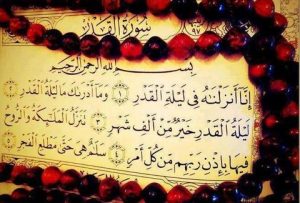 سُورَةُ الْقَدْرِ ٩٧
بِسْمِ اللَّهِ الرَّحْمَٰنِ الرَّحِيمِ
إِنَّا أَنزَلْنَاهُ فِي لَيْلَةِ الْقَدْرِ ١ وَمَا أَدْرَاكَ مَا لَيْلَةُ الْقَدْرِ ٢
لَيْلَةُ الْقَدْرِ خَيْرٌ مِّنْ أَلْفِ شَهْرٍ ٣ تَنَزَّلُ الْمَلَائِكَةُ وَالرُّوحُ
فِيهَا بِإِذْنِ رَبِّهِم مِّن كُلِّ أَمْرٍ ٤ سَلَامٌ هِيَ حَتَّىٰ مَطْلَعِ الْفَجْرِ ٥